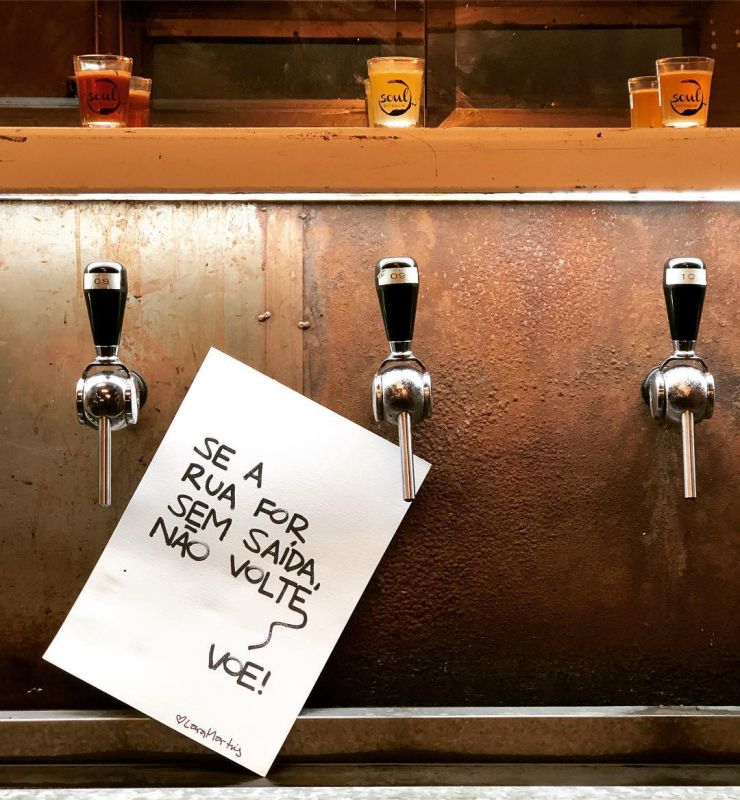 soul
soul
soul
08
09
10
SE A
RUA FOR
SEM SAÍDA,
NÃO VOLTE
VOE!
♡LaraMartins